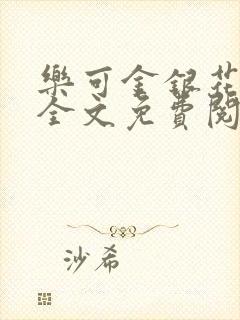 樂可金銀花
全文免費閱
沙希